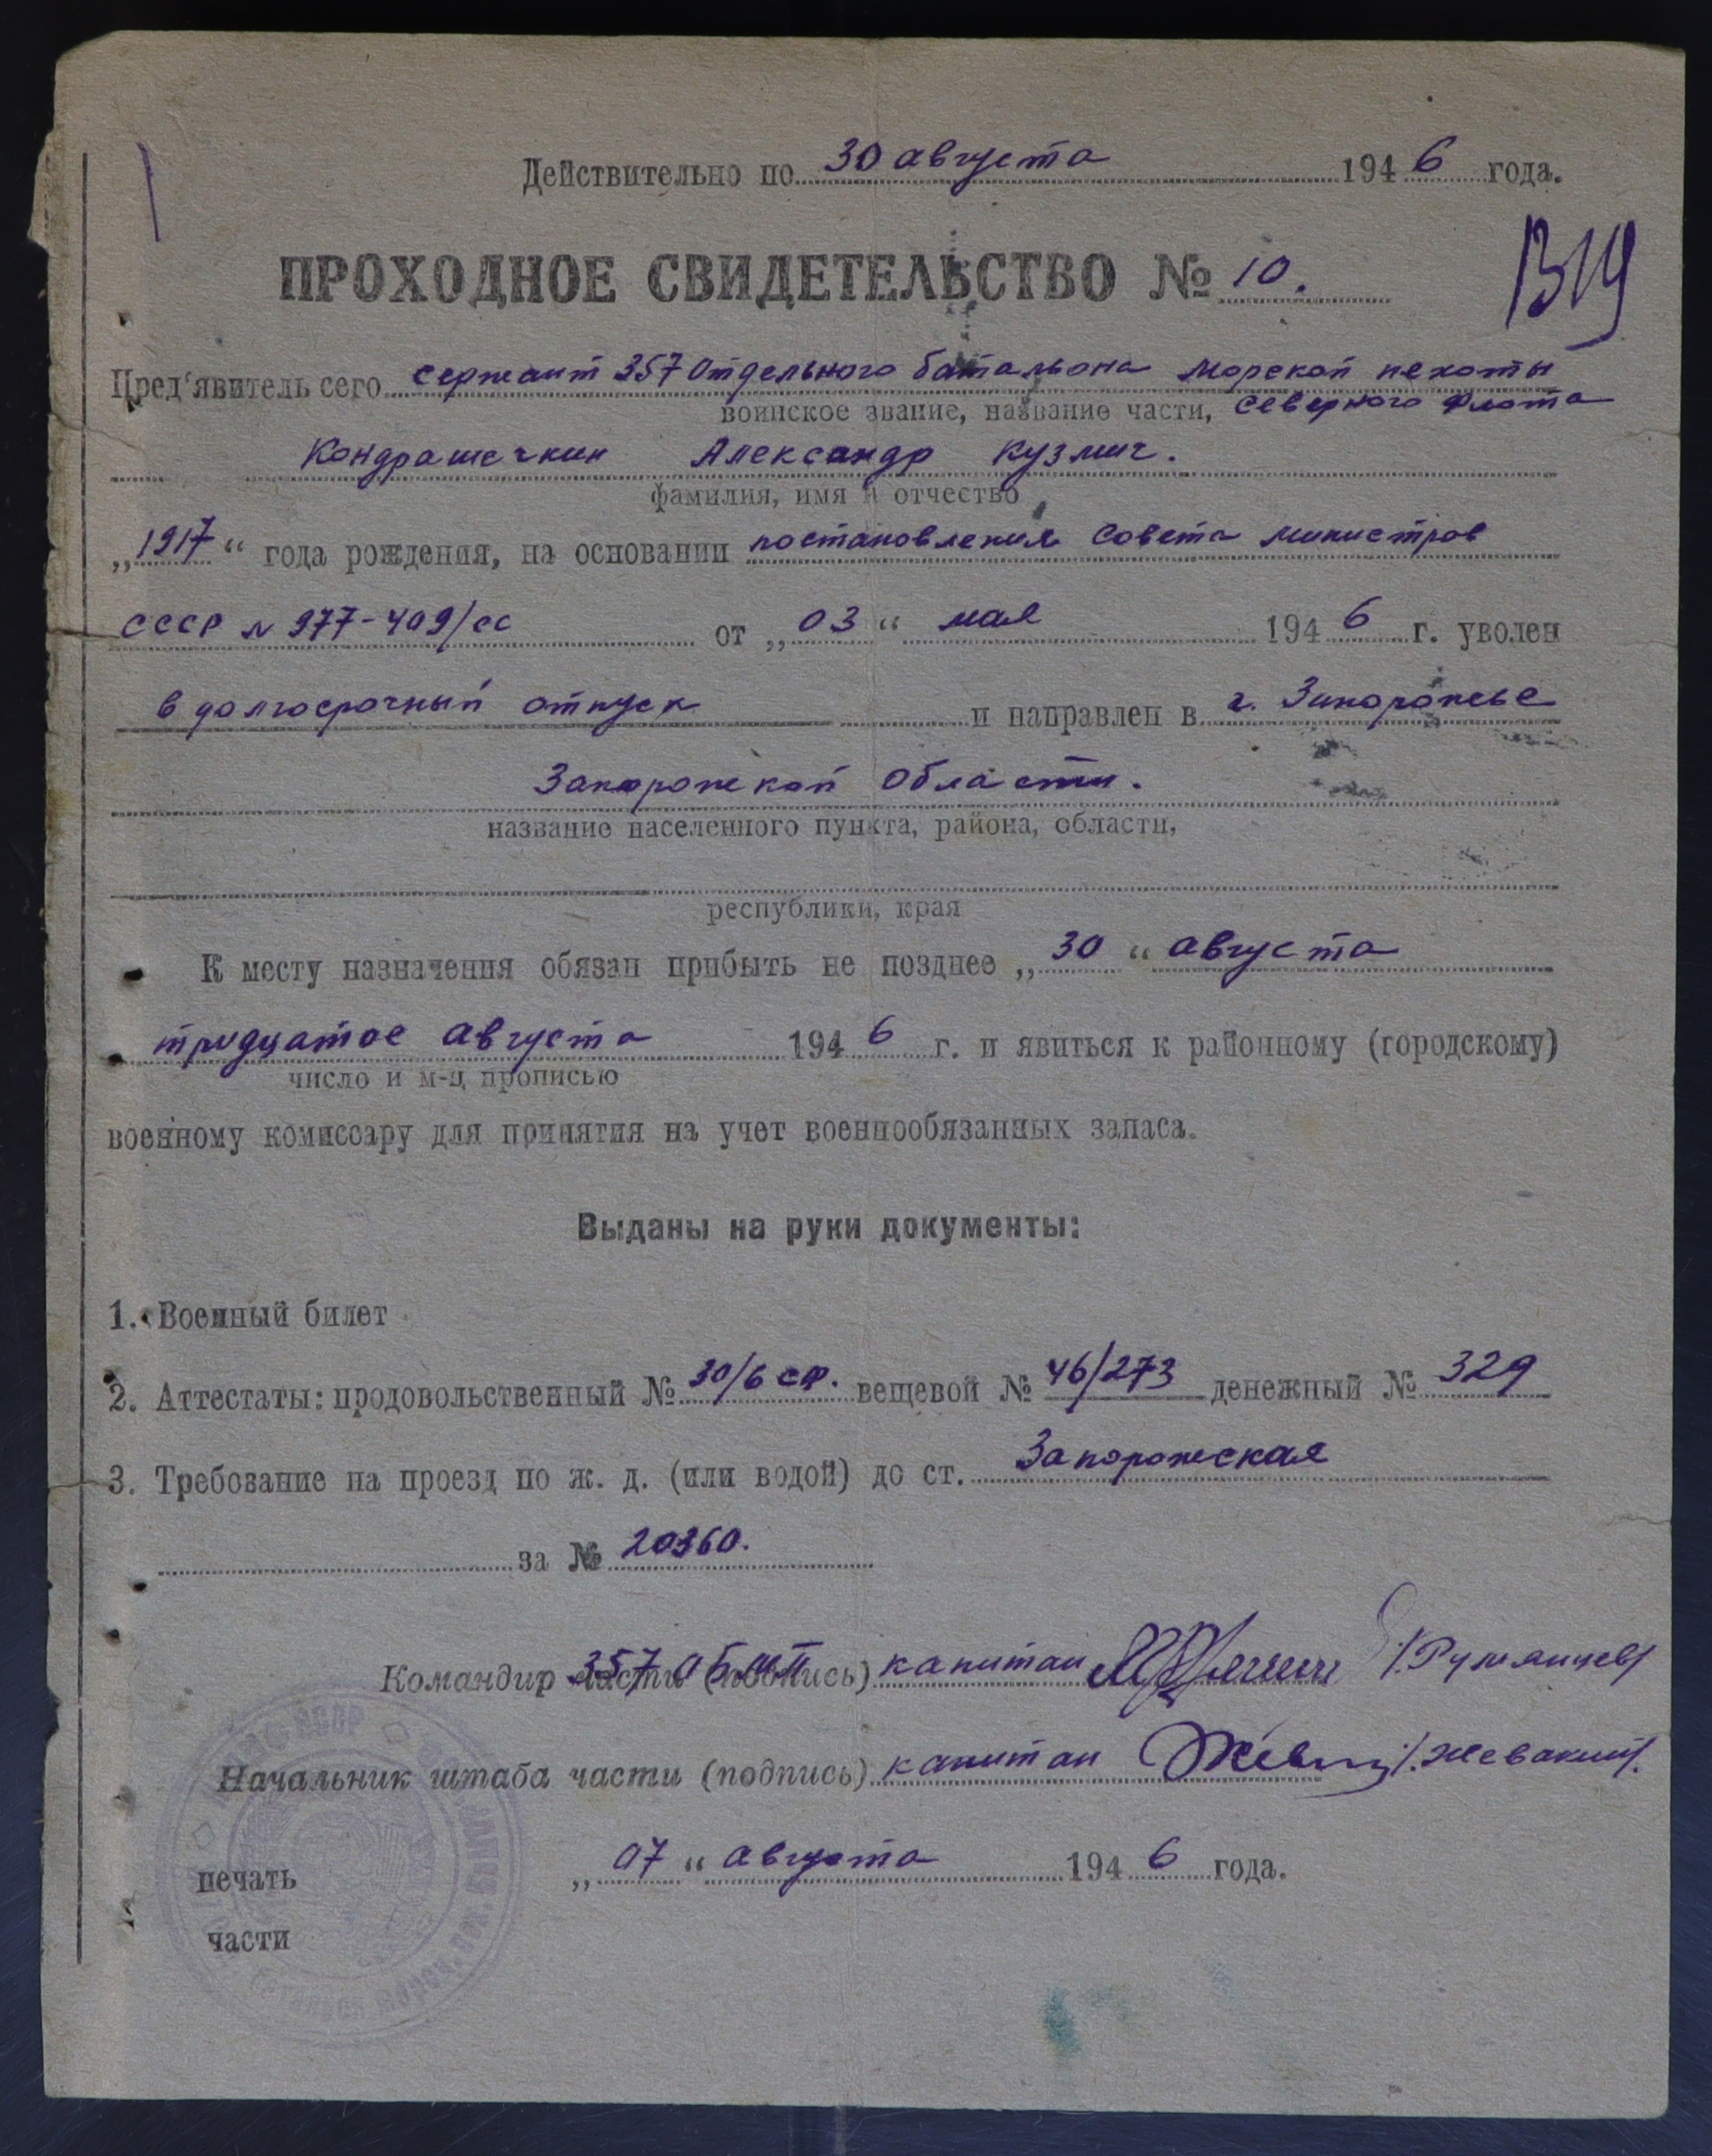 Действительно по 30 августа 1946 года.
ПРОХОДНОЕ СВИДЕТЕЛЬСТВО № 10.
1319
Пред'явитель сего сержант 357 отдельного батальона морской пехоты
воинское звание, название части, Северного Флота
Кондрашечкин Александр Кузмич.
фамилия, имя и отчество
„1917“ года рождения, на основании постановления Совета министров
СССР № 977-409/сс от „03“ мая 1946 г. уволен
в долгосрочный отпуск и направлен в г. Запорожье
Запорожской области.
название населенного пункта, района, области,
республики, края
К месту назначения обязан прибыть не позднее „30“ августа
тридцатое августа 1946 г. и явиться к районному (городскому)
число и м-ц прописью
военному комиссару для принятия на учет военнообязанных запаса.
Выданы на руки документы:
1. Военный билет
2. Аттестаты: продовольственный № 30/6 СФ. вещевой № 46/273 денежный № 329
3. Требование на проезд по ж. д. (или водой) до ст. Запорожская
за № 20360.
Командир части (подпись) 357 ОБМП капитан /.Румянцев/
Начальник штаба части (подпись) капитан /.Жевакин/.
печать „07“ августа 1946 года.
части